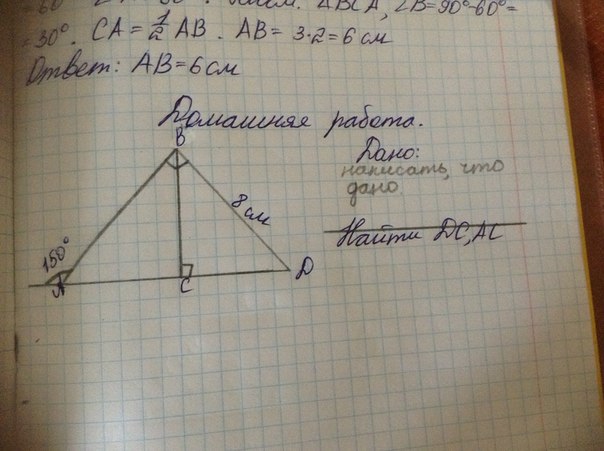 = 30°. CA = 1/2 AB. AB = 3·2 = 6 см
Ответ: AB = 6 см
Домашняя работа.
B
Дано:
написать, что
дано
8 см
Найти DC, AC
150°
A
C
D